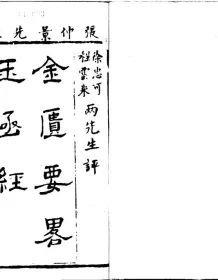 張仲景先
徐忠可
程雲來
兩先生評
金匱要畧
玉函經